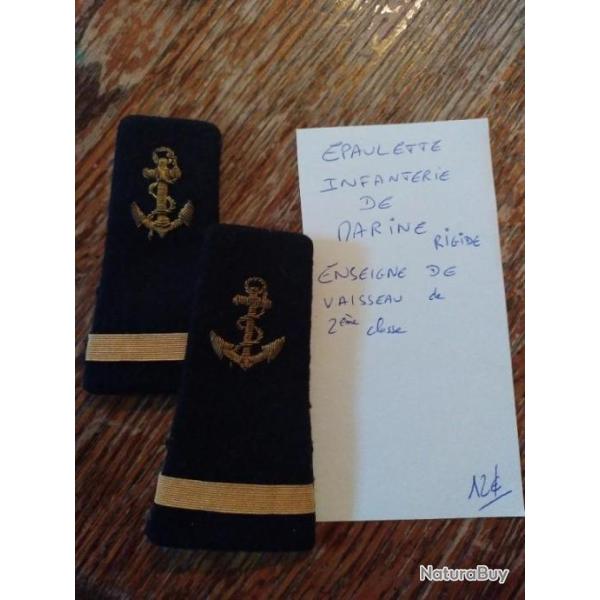 EPAULETTE
INFANTERIE
DE
MARINE RIGIDE
ENSEIGNE DE
VAISSEAU de
2ème classe
12€
NaturaBuy